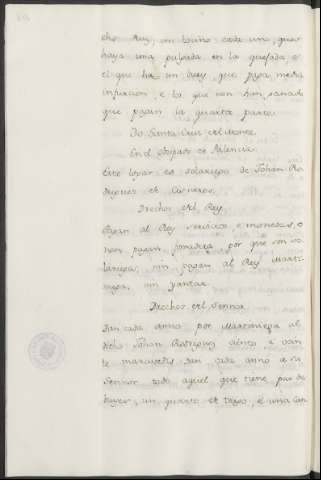 cho Rey, un tocino cada uno, que
haya una pulgada en la quexada e
el que ha un buey, que paga media
infurcion e los que non han ganado
que pagan la quarta parte.
Do Santa Cruz del Monte.
En el Obispado de Palencia.
Este logar es solariego de Johan Ro-
driguez de Cisneros.
Drechos del Rey.
Pagan al Rey servicios e monedas, e
non pagan fonsadera por que son so-
lariegos, nin pagan al Rey Marti-
niega, nin yantar.
Drechos del Sennor.
Dan cada anno por Martiniega al
dicho Johan Rodriguez ciento e vein-
te maravedis, dan cada anno a su
Sennor todo aquel que tiene par de
bueyes, un quarto de trigo, e una can